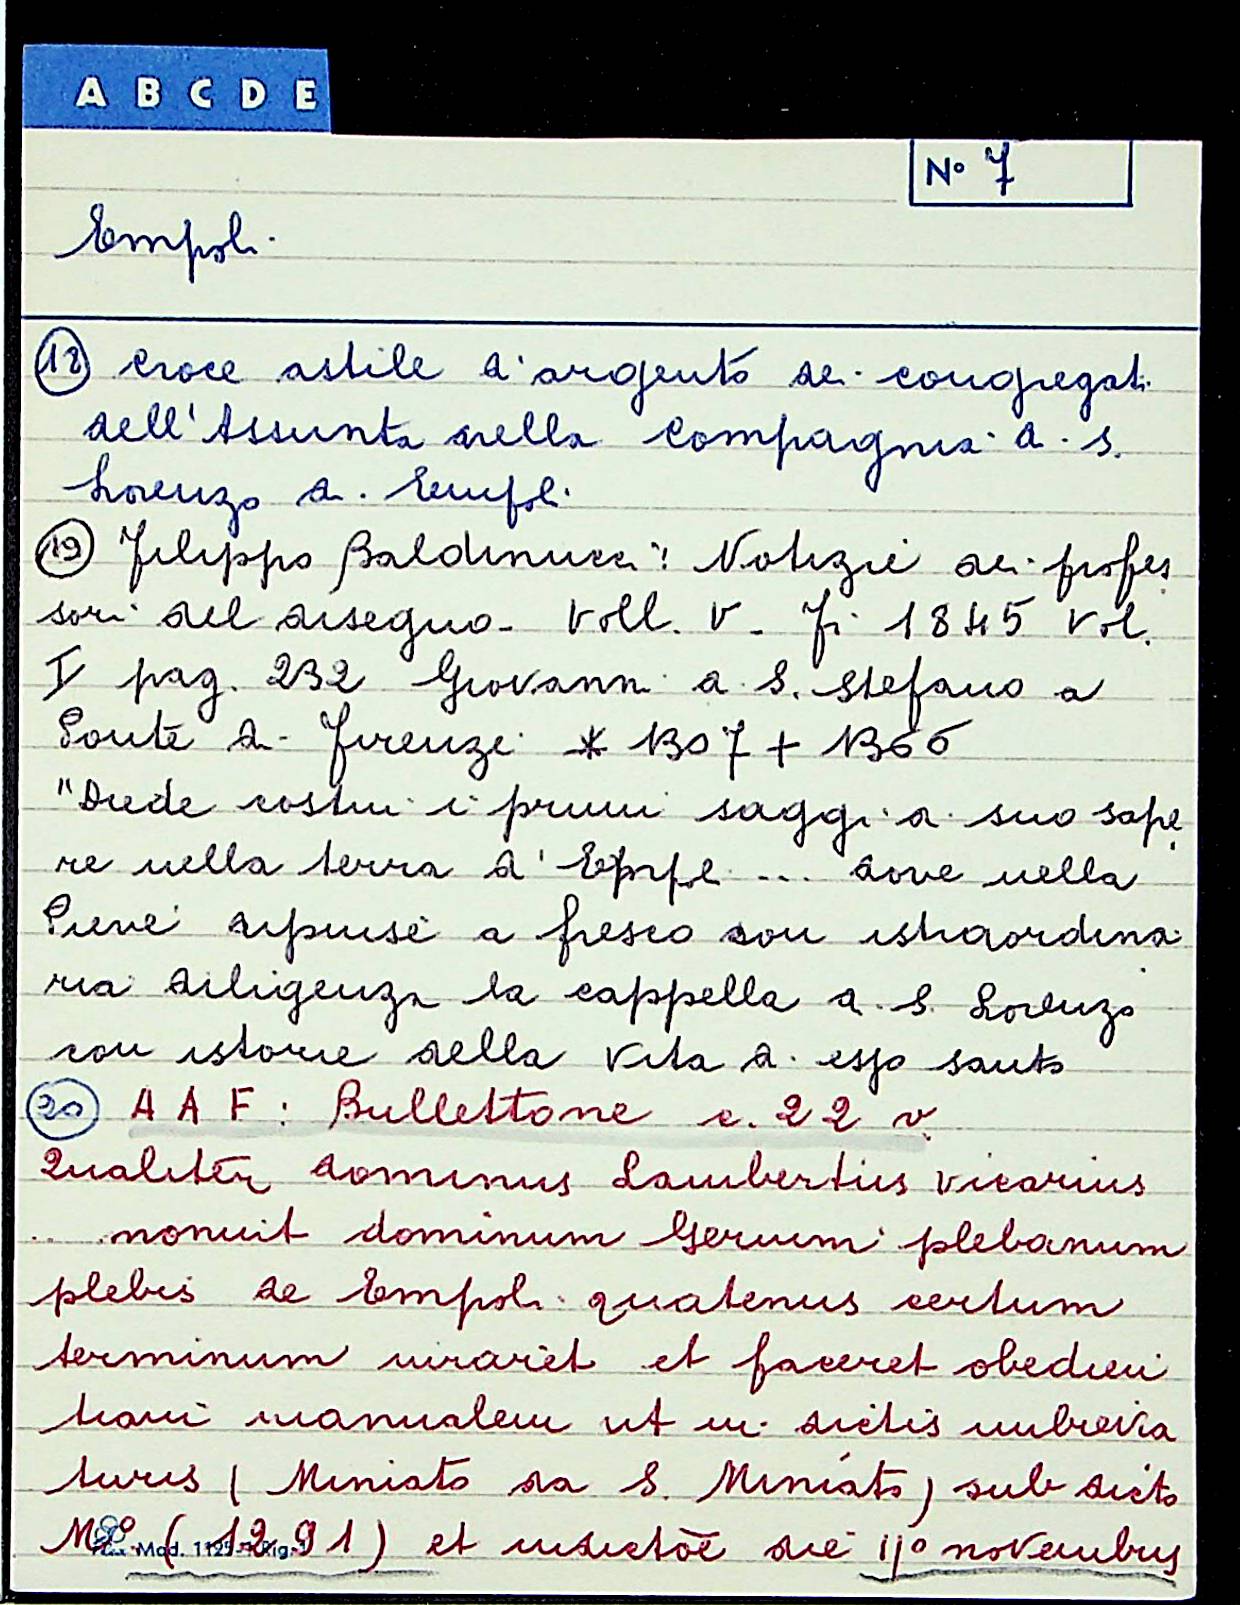 A B C D E
N° 7
Empoli
18 Croce astile d'argento dei congregati
dell'Assunta nella Compagnia di S.
Lorenzo di Empoli
19 Filippo Baldinucci: Notizie dei profes
sori del disegno - Voll. V - Fi 1845 Vol.
I pag. 232 Giovanni da S. Stefano a
Ponte di Firenze * 1307 + 1366
"Diede costui i primi saggi di suo sape
re nella terra d' Empoli ... dove nella
Pieve dipinse a fresco con istraordina
ria diligenza la cappella di S. Lorenzo
con istorie della vita di esso santo
20 AAF: Bullettone c. 22 v.
Qualiter dominus Lambertus vicarius
... monuit dominum Gerium plebanum
plebis de Empoli quatenus certum
terminum iuraret et faceret obedien
tiam manualem ut in dictis imbrevia
turis (Miniato da S. Miniato) sub dicto
M° (1291) et indictōe die 11° novembris
Mod. 1125-1 Rig.